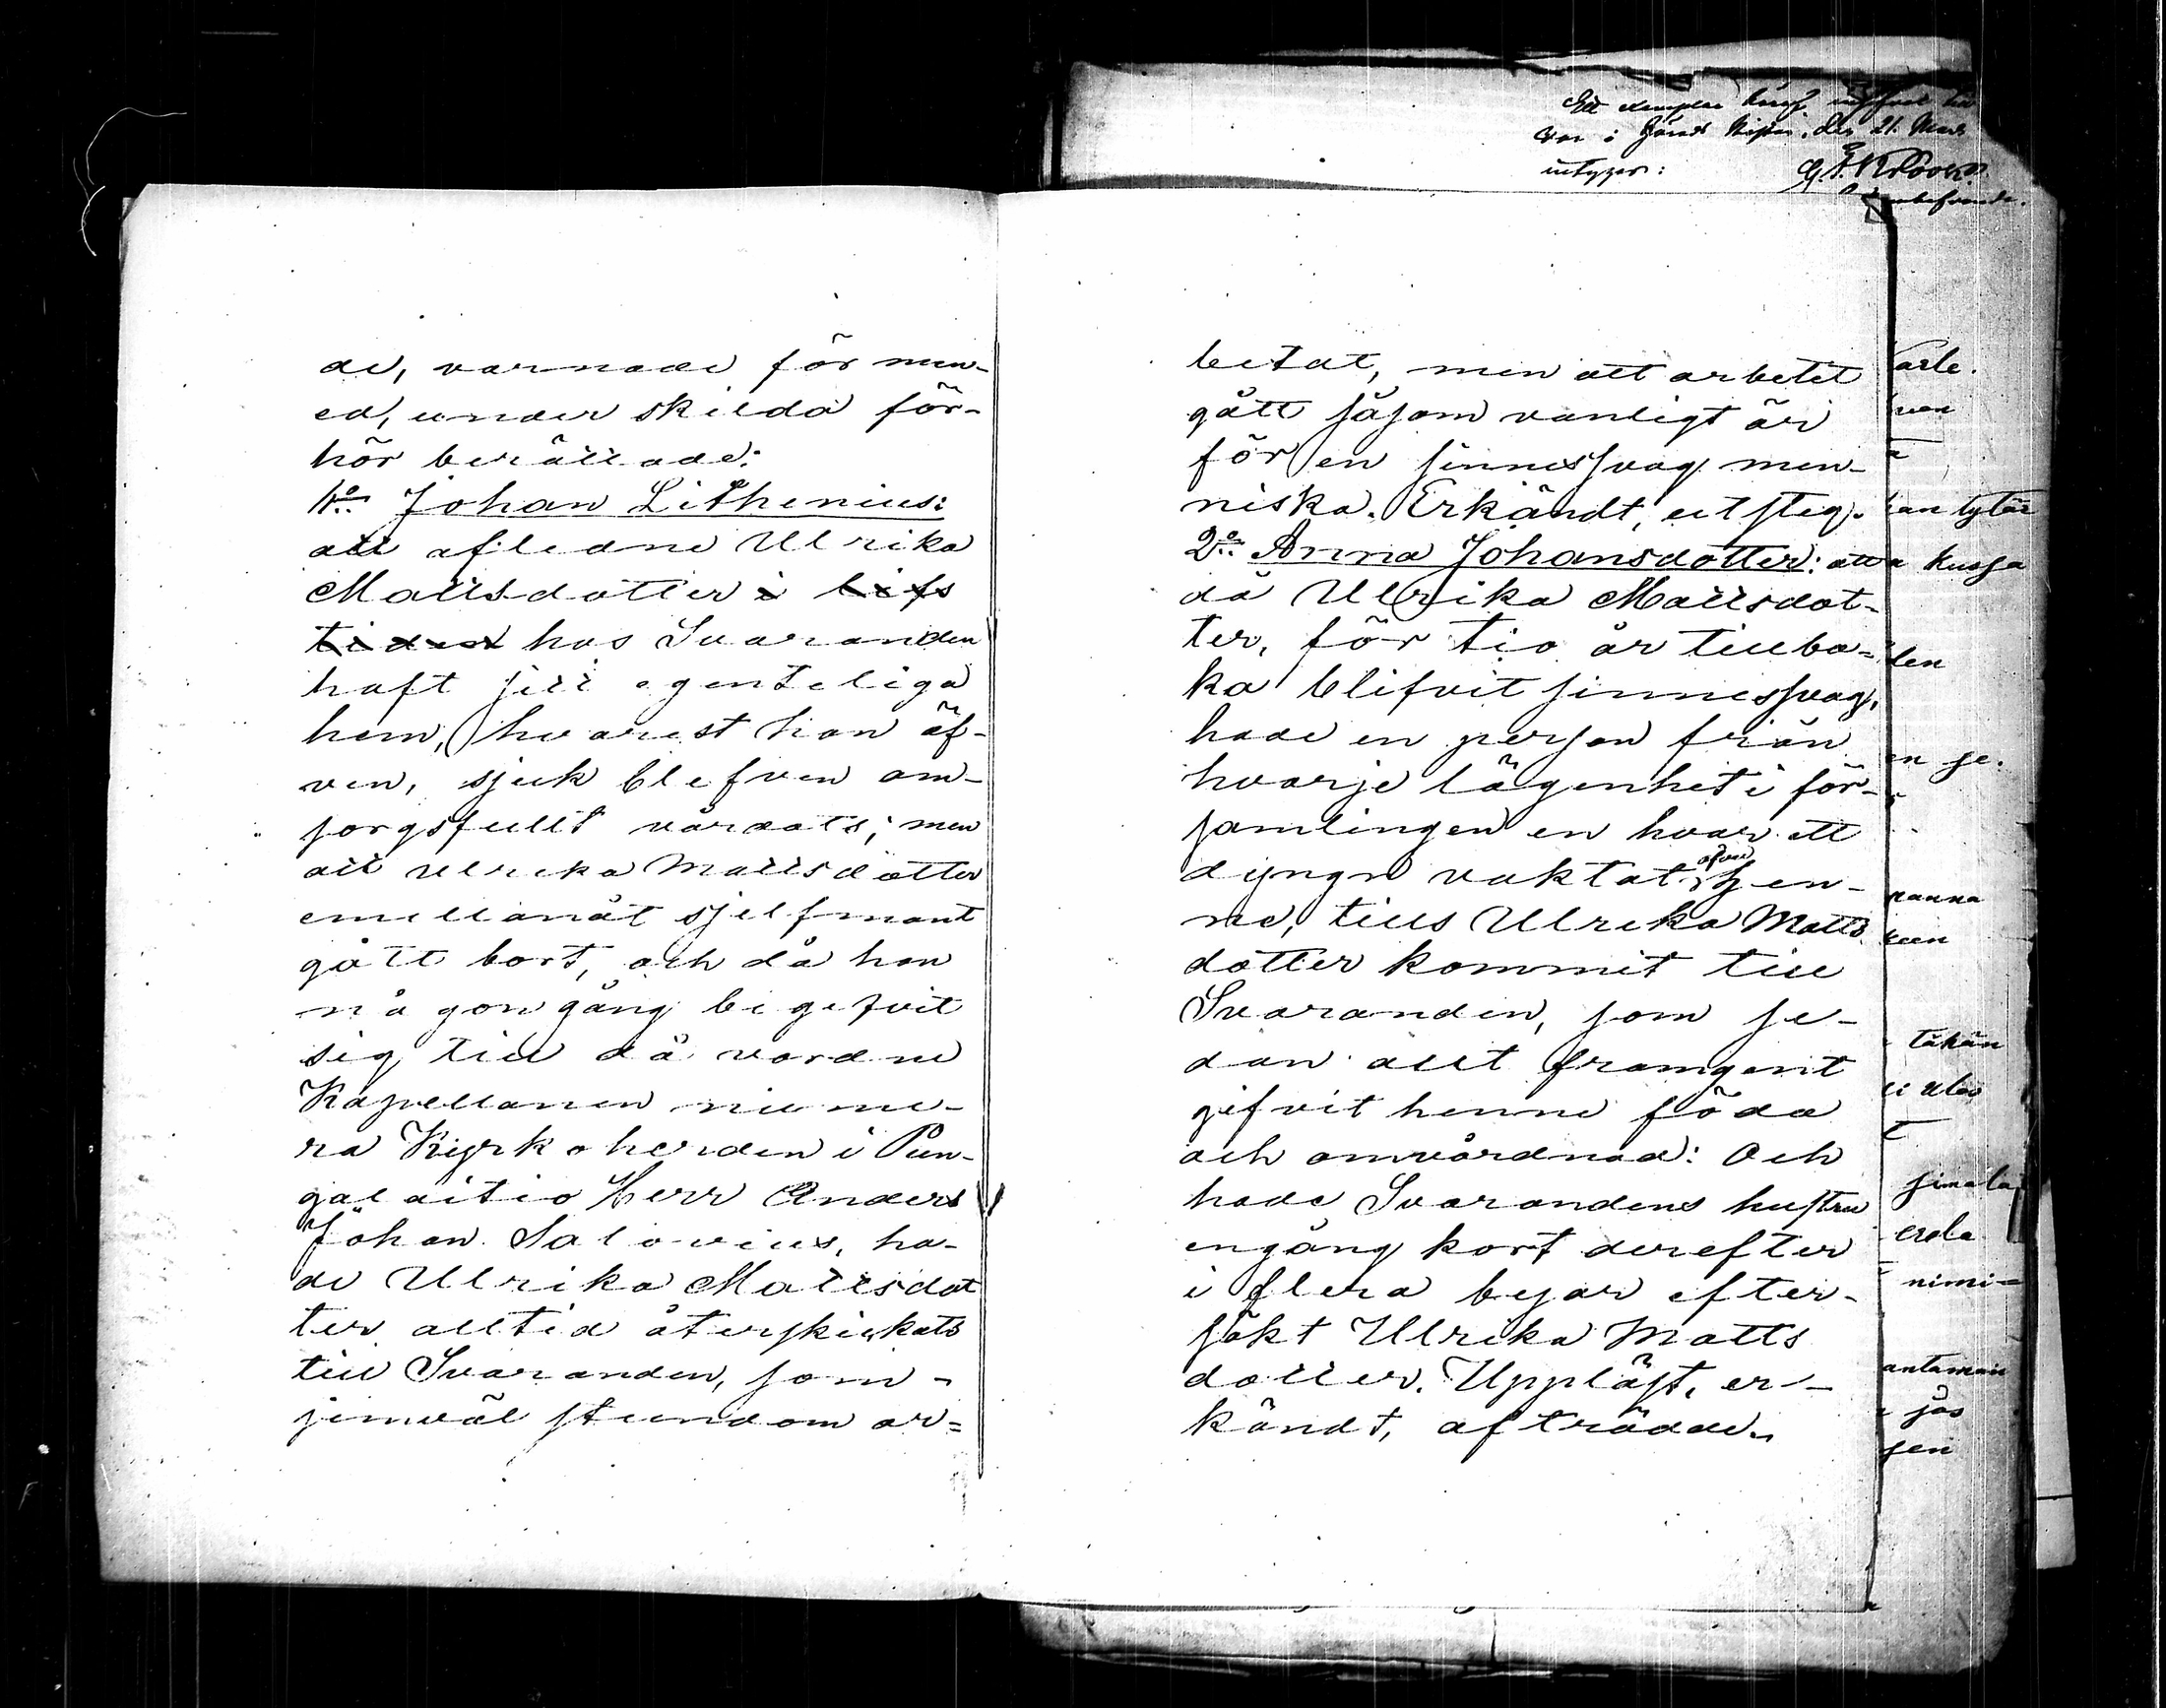 de, varnade för men-
ed, under skilda för-
hör berättade:
1:o Johan Lithenius:
att aflidne Ulrika
Mattsdotter i lifs
tiden hos Svaranden
haft sitt egenteliga
hem, hvarest hon äf-
ven, sjuk blefven om-
sorgsfullt vårdats; men
att Ulrika Mattsdotter
emellanåt sjelfmant
gått bort, och då hon
någon gång begifvit
sig till då varande
Kapellanen nume-
ra Kyrkoherden i Pun-
galaitio Herr Anders
Johan Salovius, ha-
de Ulrika Mattsdot
ter alltid återskickats
till Svaranden, som
jemväl stundom ar=
betat, men att arbetet
gått såsom vanligt är
för en sinnessvag men-
niska. Erkändt, utsteg.
2:o Anna Johansdotter: att
då Ulrika Mattsdot-
ter, för tio år tillba=
ka blifvit sinnessvag,
hade en person från
hvarje lägenhet i för-
samlingen en hvar ett
dygn vaktat öfver hen-
ne, tills Ulrika Matts
dotter kommit till
Svaranden, som se-
dan allt framgent
gifvit henne föda
och omvårdnad: Och
hade Svarandens hustru
engång kort derefter
i flera byar efter-
sökt Ulrika Matts
dotter. Uppläst, er-
kändt, afträdde.
Ett exemplar
i den 21. Mars
intygar:
arle.
tytär
kussa
ten
en se.
nanna
tähän
simala
erda
nimi=
antaman
jos
sen